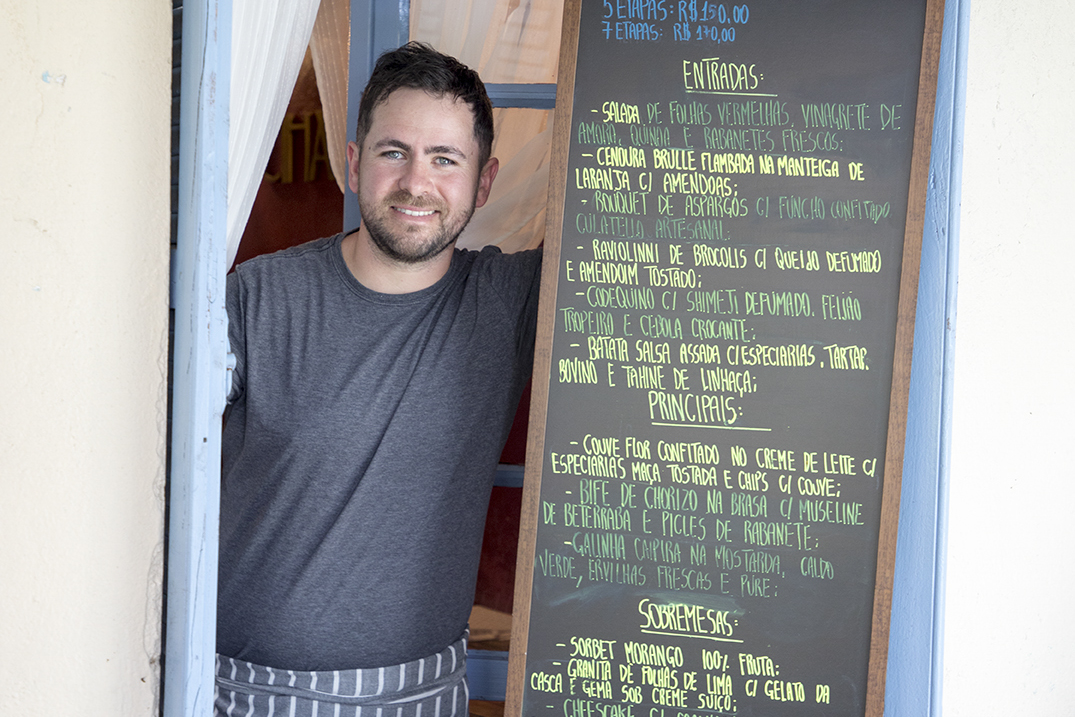 5 ETAPAS: R$ 150,00
7 ETAPAS: R$ 170,00
ENTRADAS:
- SALADA DE FOLHAS VERMELHAS, VINAGRETE DE
AMORA, QUINOA E RABANETES FRESCOS;
- CENOURA BRULLE FLAMBADA NA MANTEIGA DE
LARANJA C/ AMENDOAS;
- BOUQUET DE ASPARGOS C/ FUNCHO CONFITADO
CULATELLO ARTESANAL;
- RAVIOLINNI DE BROCOLIS C/ QUEIJO DEFUMADO
E AMENDOIM TOSTADO;
- CODEQUINO C/ SHIMETI DEFUMADO, FEIJÃO
TROPEIRO E CEBOLA CROCANTE;
- BATATA SALSA ASSADA C/ ESPECIARIAS, TARTAR
BOVINO E TAHINE DE LINHAÇA;
PRINCIPAIS:
- COUVE FLOR CONFITADO NO CREME DE LEITE C/
ESPECIARIAS MAÇA TOSTADA E CHIPS C/ COUVE;
- BIFE DE CHORIZO NA BRASA C/ MUSELINE
DE BETERRABA E PICLES DE RABANETE;
- GALINHA CAIPIRA NA MOSTARDA, CALDO
VERDE, ERVILHAS FRESCAS E PURE;
SOBREMESAS:
- SORBET MORANGO 100% FRUTA;
- GRANITA DE FOLHAS DE LIMA C/ GELATO DA
CASCA E GEMA SOB CREME SUIÇO;
- CHEESCAKE C/